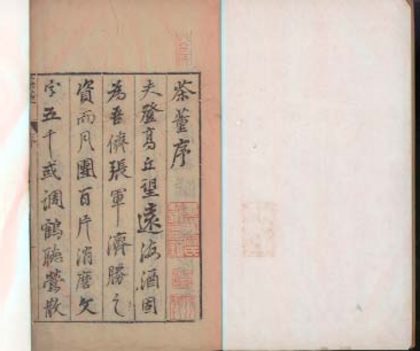 茶董序
夫登高丘望遠海酒固
為吾儕張軍濟勝之
資而月團百片消磨文
字五千或調鶴聽鶯散